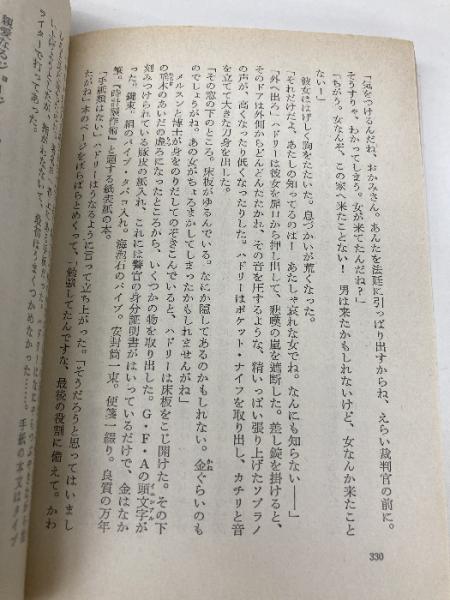 「気をつけるんだね、おかみさん。あんたを法廷に引っぱり出すからね、えらい裁判官の前に。
そうすりゃ、わかってしまう。女が来てたんだね?」
「ちがう。女なんぞ、この家へ来たことない! 男は来たかもしれないけど、女なんか来たこと
ない!」
彼女ははげしく胸をたたいた。息づかいが荒くなった。
「それだけだよ、あたしの知ってるのは! あたしゃ哀れな女でね。なんにも知らない――」
「外へ出ろ」ハドリーは彼女を扉口から押し出して、悲嘆の嵐を遮断した。差し錠を掛けると、
そのドアは外側からどんどんたたかれ、その音を圧するような、精いっぱい張り上げたソプラノ
の声が、高くなったり低くなったりした。ハドリーはポケット・ナイフを取り出し、カチリと音
を立てて大きな刀身を出した。
「その窓の下のところ。床板がゆるんでいる。なにか隠してあるのかもしれない。金ぐらいのも
のでしょうがね。あの女がちょろまかしてしまったかもしれませんがね」
メルスンと博士が身をのりだしてのぞきこんでいると、ハドリーは床板をこじ開けた。その下
の啼木のあいだの虚ろになったところから、いくつかの物を取り出した。G・F・Aの頭文字が
刻みつけられている豚皮の紙入れ、これには警官の身分証明書がはいっているだけで、金はなか
った。鍵束、桐のパイプ・タバコ入れ。海泡石のパイプ。安封筒一束。便箋一綴り。良質の万年
筆。『時計製作術』と題する紙表紙の本。
「手紙類はない」ハドリーはうなるように言って立ち上がった。「そうだろうと思ってはいまし
たがね」本のページをぱらぱらとめくって、「勉強してたんですな、最後の役割に備えて。かわ
手紙の本文はタイプ
ライターで打ってあった。
親愛なるジョージ
330